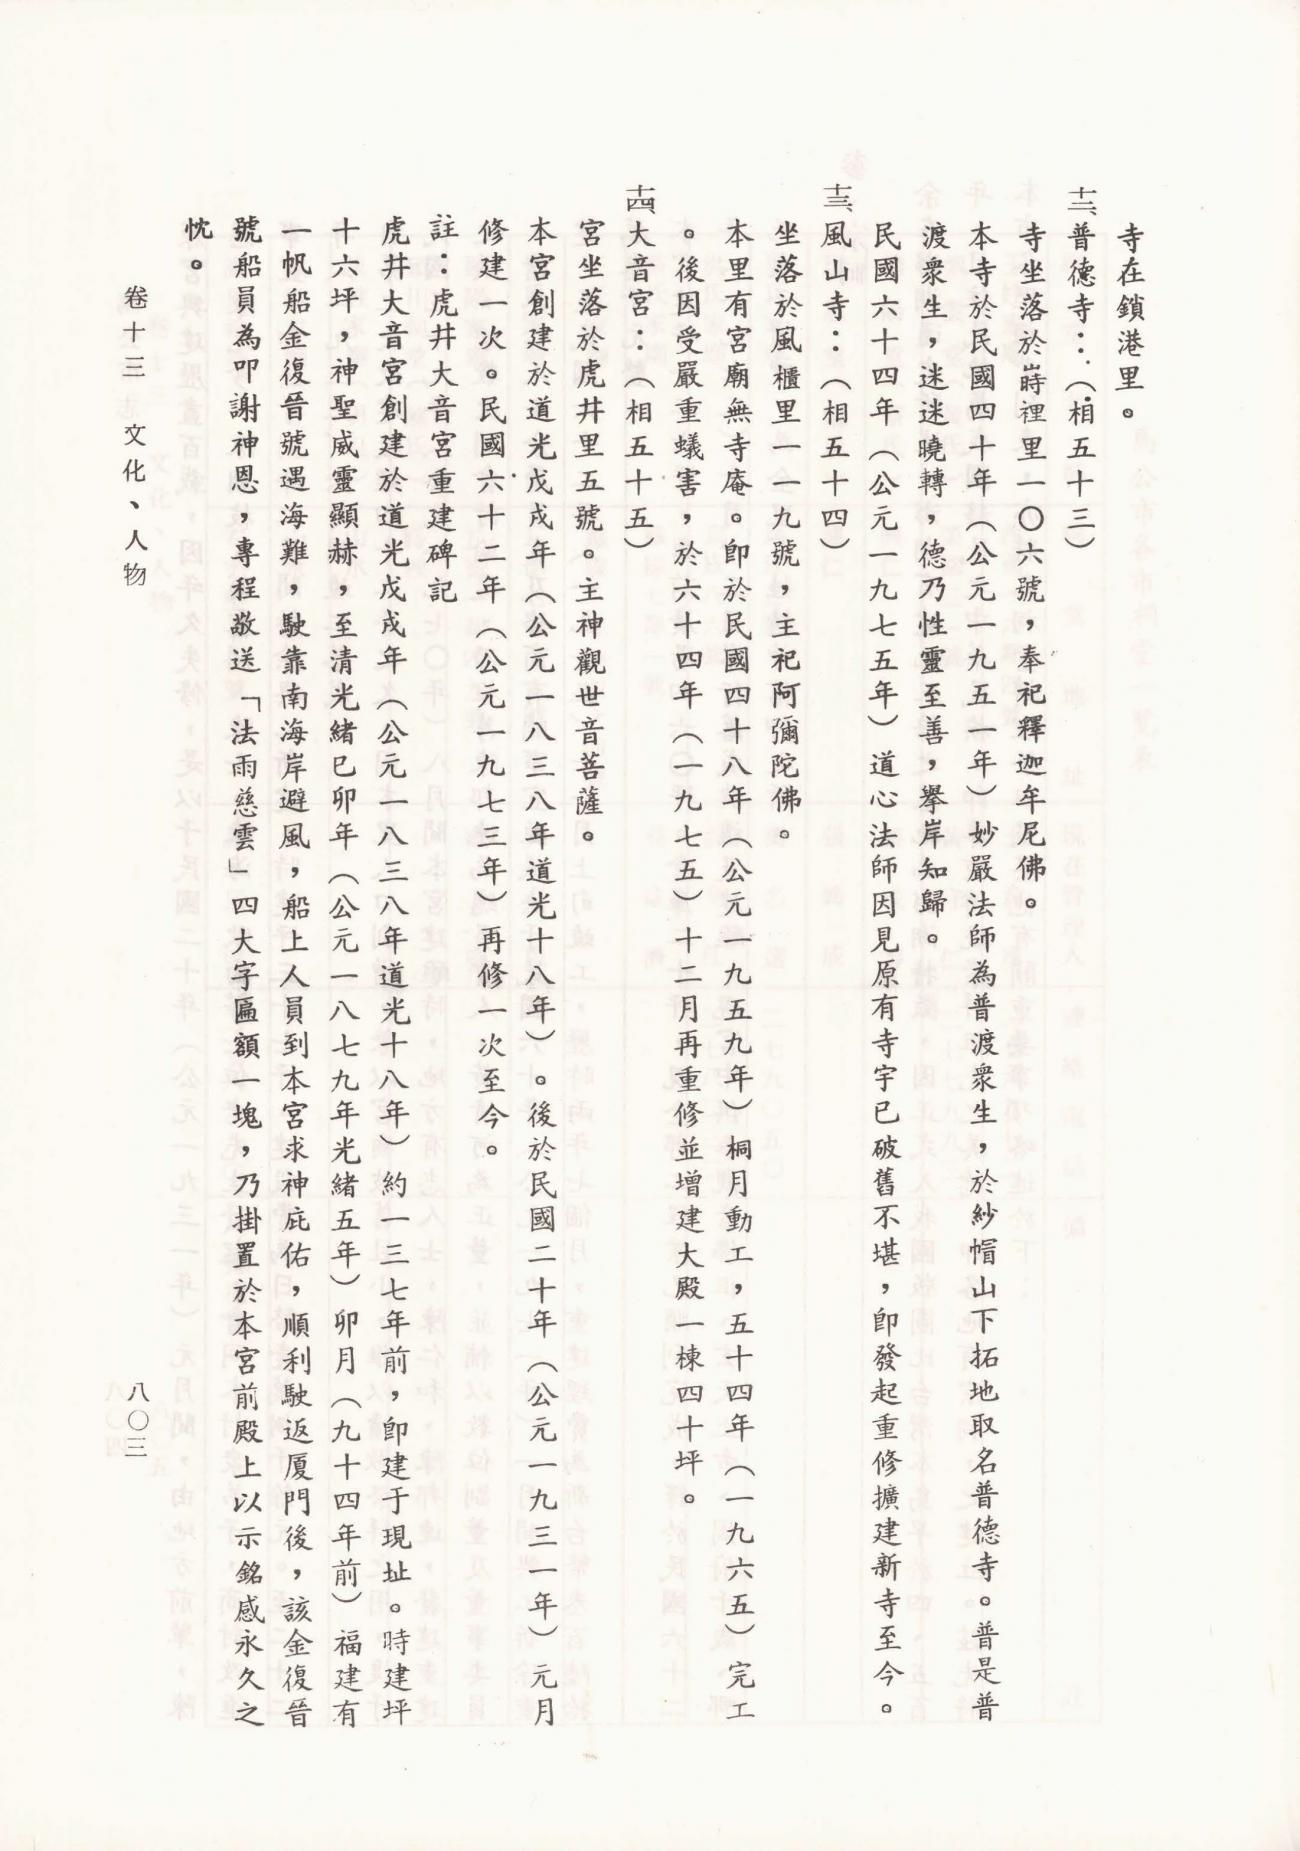 寺在鎖港里。
十二、普德寺：（相五十三）
寺坐落於嵵裡里一〇六號，奉祀釋迦牟尼佛。
本寺於民國四十年（公元一九五一年）妙嚴法師為普渡衆生，於紗帽山下拓地取名普德寺。普是普
渡衆生，迷迷曉轉，德乃性靈至善，擧岸知歸。
民國六十四年（公元一九七五年）道心法師因見原有寺宇已破舊不堪，卽發起重修擴建新寺至今。
十三、風山寺：（相五十四）
坐落於風櫃里一一九號，主祀阿彌陀佛。
本里有宮廟無寺庵。卽於民國四十八年（公元一九五九年）桐月動工，五十四年（一九六五）完工
。後因受嚴重蟻害，於六十四年（一九七五）十二月再重修並增建大殿一棟四十坪。
十四、大音宮：（相五十五）
宮坐落於虎井里五號。主神觀世音菩薩。
本宮創建於道光戊戌年（公元一八三八年道光十八年）。後於民國二十年（公元一九三一年）元月
修建一次。民國六十二年（公元一九七三年）再修一次至今。
註：虎井大音宮重建碑記
虎井大音宮創建於道光戊戌年（公元一八三八年道光十八年）約一三七年前，卽建于現址。時建坪
十六坪，神聖威靈顯赫，至清光緒已卯年（公元一八七九年光緒五年）卯月（九十四年前）福建有
一帆船金復晉號遇海難，駛靠南海岸避風，船上人員到本宮求神庇佑，順利駛返厦門後，該金復晉
號船員為叩謝神恩，專程敬送「法雨慈雲」四大字匾額一塊，乃掛置於本宮前殿上以示銘感永久之
忱。
卷十三 文化、人物
八〇三